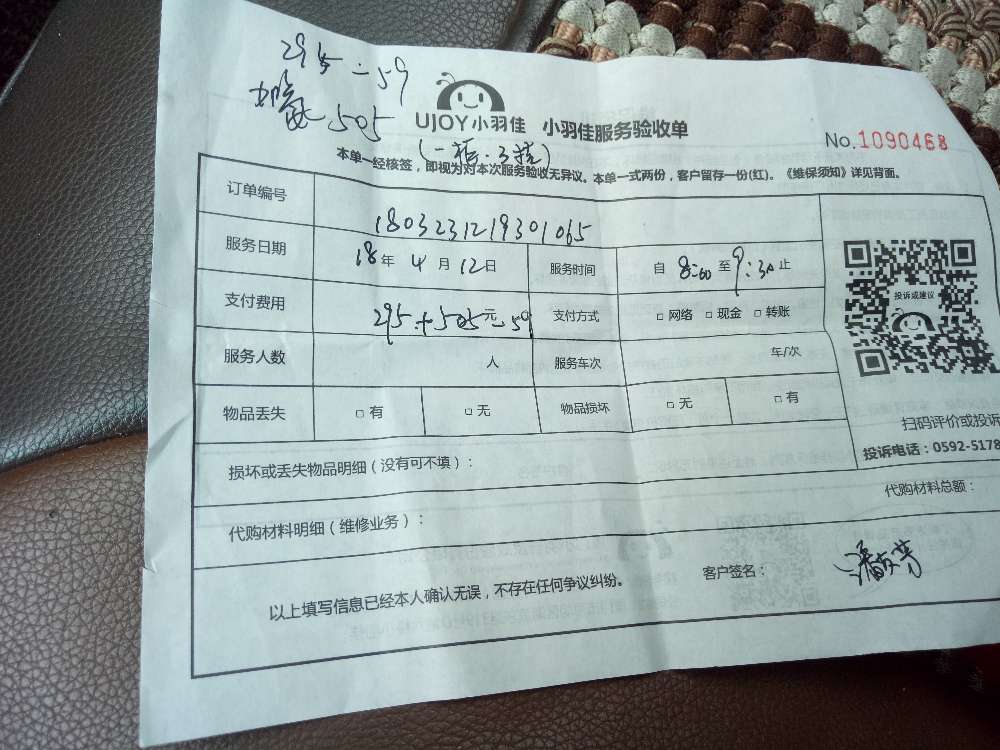 295 - 59
加氟 505
UJOY小羽佳 小羽佳服务验收单
No.1090468
本单一经核签，即视为对本次服务验收无异议。本单一式两份，客户留存一份(红)。《维保须知》详见背面。
订单编号 1803231219301065
服务日期 18年 4月 12日 服务时间 自 8:00 至 9:30 止
支付费用 295+505元-59 支付方式 □ 网络 □ 现金 □ 转账
投诉或建议
服务人数 人 服务车次 年/次
物品丢失 □ 有 □ 无 物品损坏 □ 无 □ 有
扫码评价或投诉
投诉电话：0592-5178
损坏或丢失物品明细（没有可不填）：
代购材料总额：
代购材料明细（维修业务）：
以上填写信息已经本人确认无误，不存在任何争议纠纷。 客户签名：